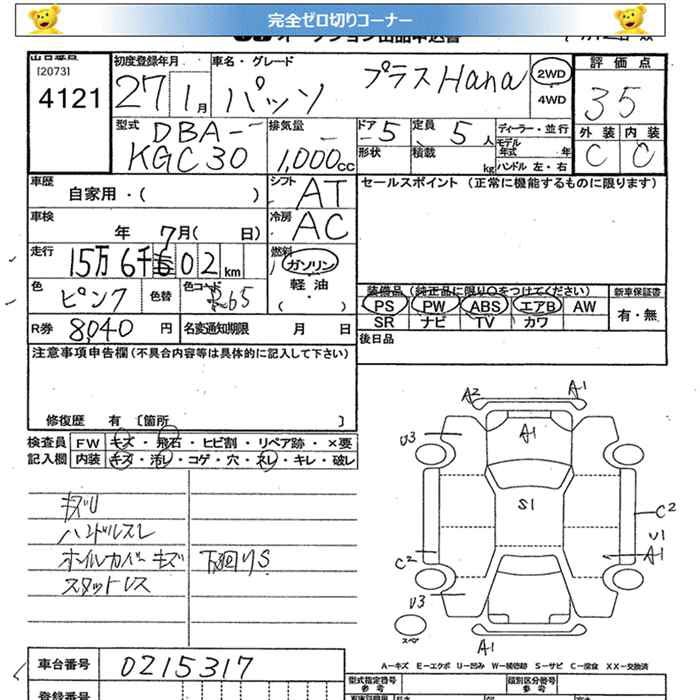 完全ゼロ切りコーナー
オークション出品申込書
出品番号
[2073]
4121
初度登録年月
27 1月
車名・グレード
パッソ プラスHana
2WD
4WD
評価点
35
外装 内装
C C
型式
DBA-
KGC30
排気量
1,000cc
ドア 5
定員 5人
ディーラー・並行
形状
積載 kg
モデル年式 年
ハンドル 左・右
車歴
自家用・( )
シフト AT
セールスポイント (正常に機能するものに限ります)
車検
年 7月( 日)
冷房 AC
走行
15万6千 02km
燃料
ガソリン
軽油
( ・ )
色 ピンク
色替
色コード R65
装備品(純正品に限り○をつけてください)
新車保証書
PS PW ABS エアB AW
有・無
SR ナビ TV カワ
R券 8,040円
名変通知期限 月 日
後日品
注意事項申告欄(不具合内容等は具体的に記入して下さい)
修復歴 有 〔箇所 〕
検査員 FW キズ・飛石・ヒビ割・リペア跡・×要
記入欄 内装 キズ・汚レ・コゲ・穴・ネレ・キレ・破レ
キズU
ハンドルスレ
ホイルカバーキズ 下廻りS
スタットレス
A2 A1
U3
A1
S1
C2
U1
A1
C2
U3
スペア
A1
A-キズ E-エクボ U-凹み W-補修跡 S-サビ C-腐食 XX-交換済
車台番号
0215317
型式指定番号
参考
類別区分番号
参考
登録番号